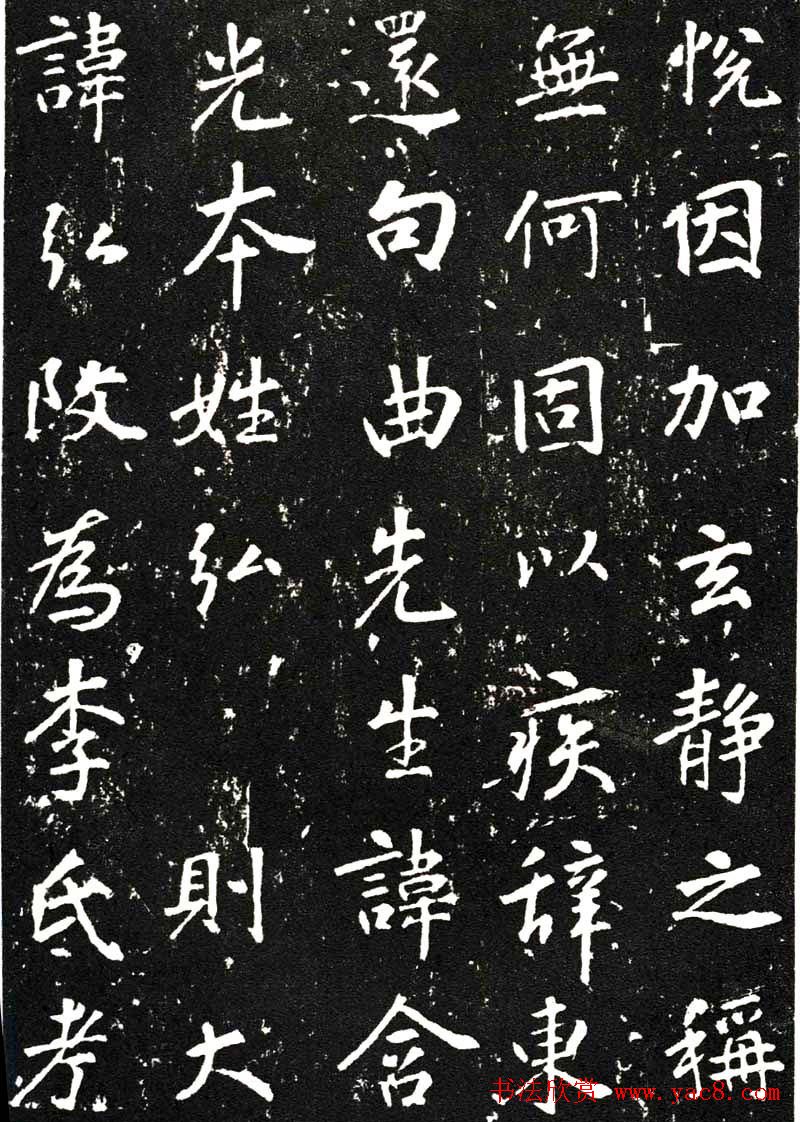 悦因加玄静之稱
無何固以疾辭東
還句曲先生諱含
光本姓弘 則大
諱弘改為李氏考
书法欣赏 www.yac8.com